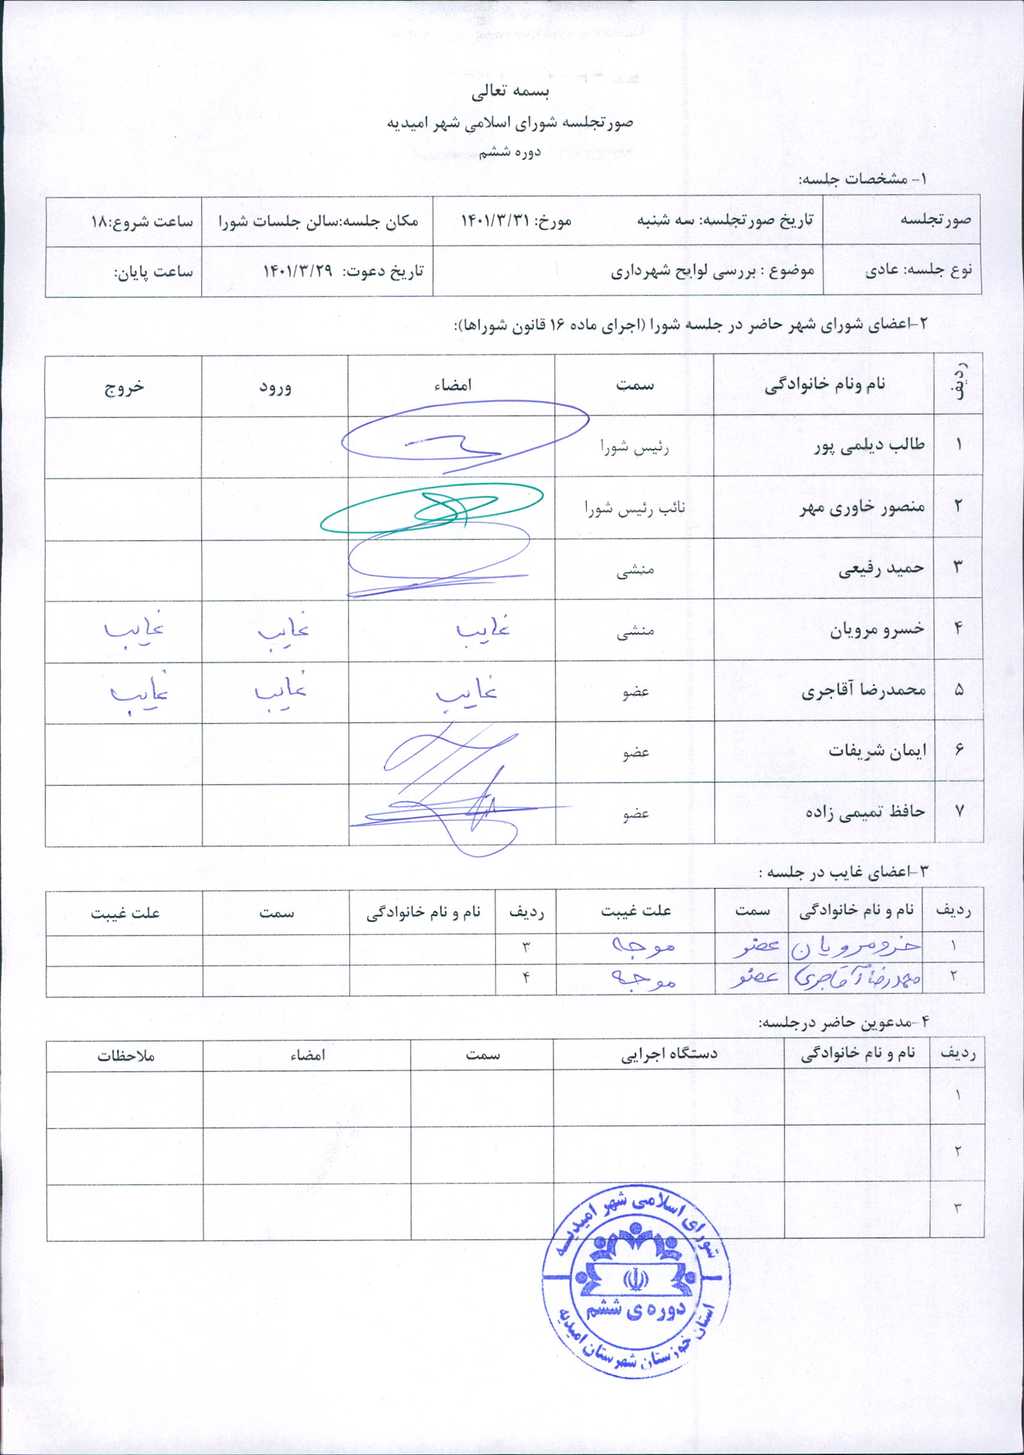 بسمه تعالی
صورتجلسه شورای اسلامی شهر امیدیه
دوره ششم
۱- مشخصات جلسه:
صورتجلسه تاریخ صورتجلسه: سه شنبه مورخ: ۱۴۰۱/۳/۳۱ مکان جلسه:سالن جلسات شورا ساعت شروع:۱۸
نوع جلسه: عادی موضوع : بررسی لوایح شهرداری تاریخ دعوت: ۱۴۰۱/۳/۲۹ ساعت پایان:
۲-اعضای شورای شهر حاضر در جلسه شورا (اجرای ماده ۱۶ قانون شوراها):
ردیف نام ونام خانوادگی سمت امضاء ورود خروج
۱ طالب دیلمی پور رئیس شورا
۲ منصور خاوری مهر نائب رئیس شورا
۳ حمید رفیعی منشی
۴ خسرو مرویان منشی غایب غایب غایب
۵ محمدرضا آقاجری عضو غایب غایب غایب
۶ ایمان شریفات عضو
۷ حافظ تمیمی زاده عضو
۳-اعضای غایب در جلسه :
ردیف نام و نام خانوادگی سمت علت غیبت ردیف نام و نام خانوادگی سمت علت غیبت
۱ خسرو مرویان عضو موجه ۳
۲ محمدرضا آقاجری عضو موجه ۴
۴-مدعوین حاضر درجلسه:
ردیف نام و نام خانوادگی دستگاه اجرایی سمت امضاء ملاحظات
۱
۲
۳
شورای اسلامی شهر امیدیه
دوره ی ششم
استان خوزستان شهرستان امیدیه